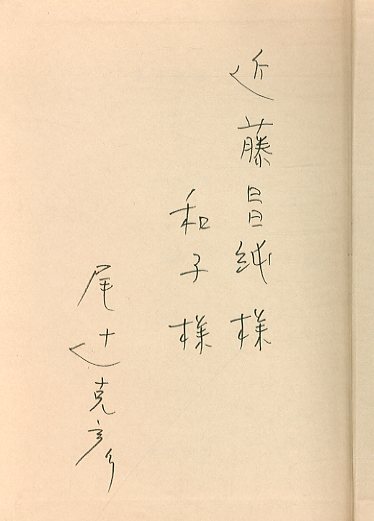 近藤昌純様
和子様
尾辻克彦